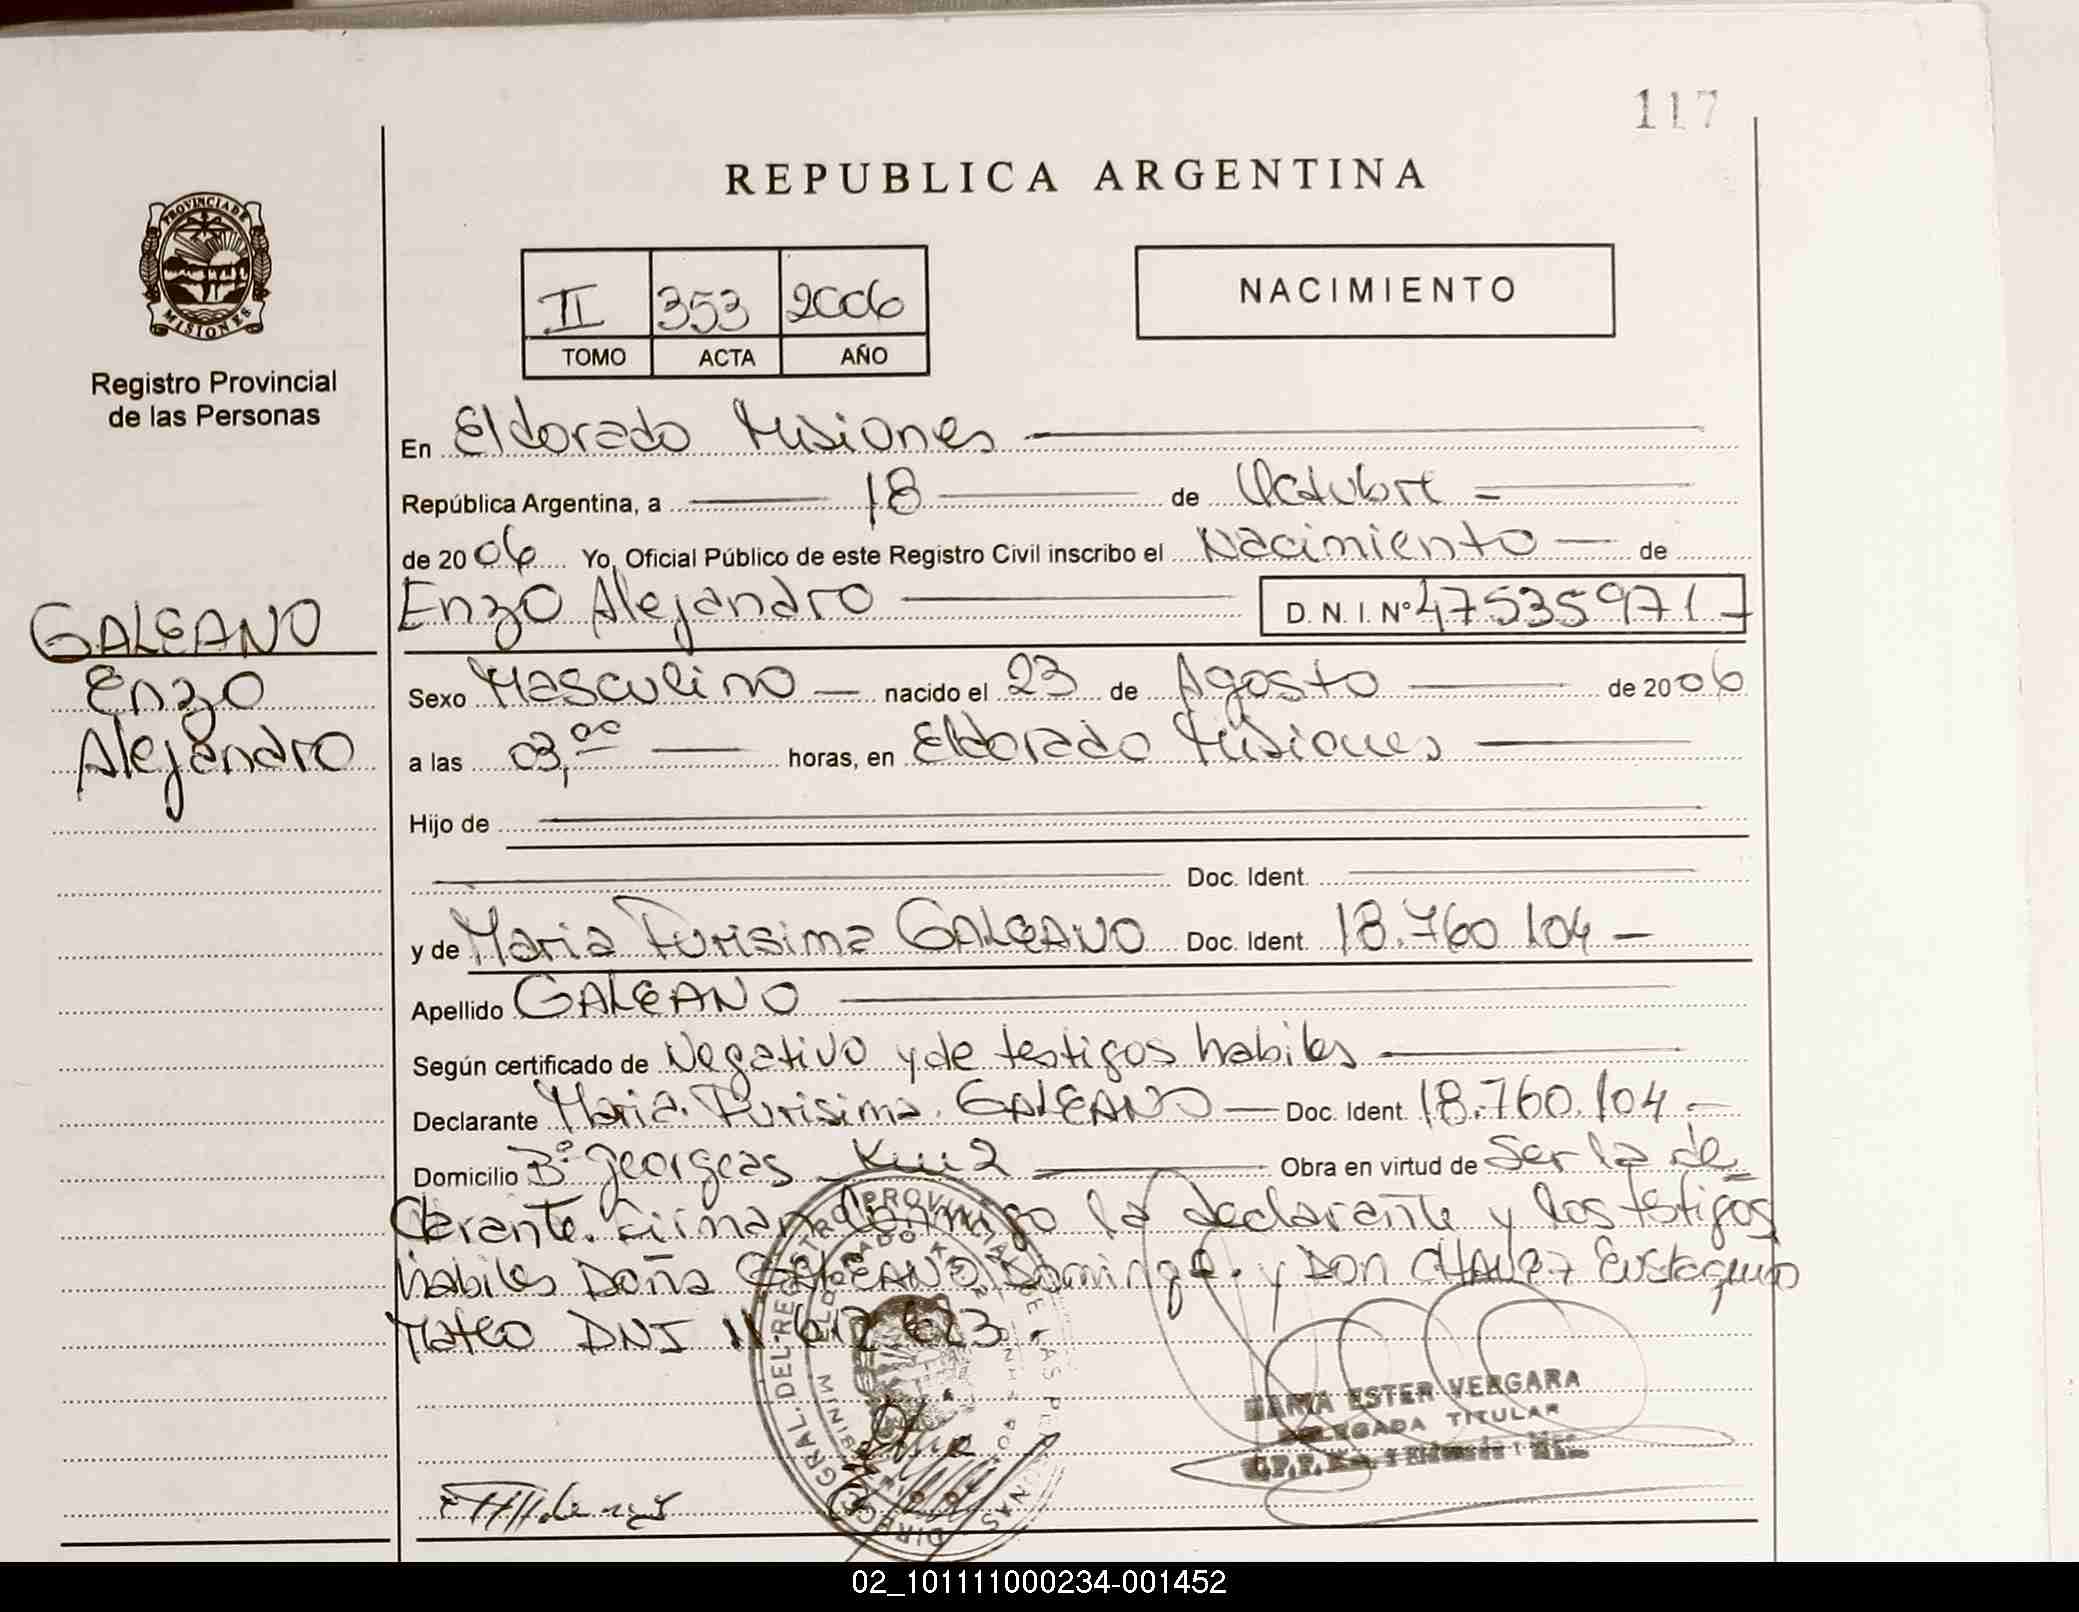 117
REPUBLICA ARGENTINA
PROVINCIA DE
MISIONES
Registro Provincial
de las Personas
II 353 2006
TOMO ACTA AÑO
NACIMIENTO
En Eldorado Misiones
República Argentina, a 18 de Octubre
de 2006 Yo, Oficial Público de este Registro Civil inscribo el Nacimiento de
Enzo Alejandro D. N. I. Nº 47535971
GALEANO
Enzo
Alejandro
Sexo Masculino nacido el 23 de Agosto de 2006
a las 03,00 horas, en Eldorado Misiones
Hijo de
Doc. Ident.
y de Maria Purisima GALEANO Doc. Ident. 18.760.104
Apellido GALEANO
Según certificado de Negativo y de testigos habiles
Declarante Maria Purisima GALEANO Doc. Ident. 18.760.104
Domicilio Bº Georgeas Km 2 Obra en virtud de Ser la de
clarante. Firman conmigo la declarante y los testigos
habiles Doña GALEANO Dominga y Don CHAVEZ Eustaquio
Mateo DNI 11.612.623
MARIA ESTER VERGARA
DELEGADA TITULAR
02_101111000234-001452